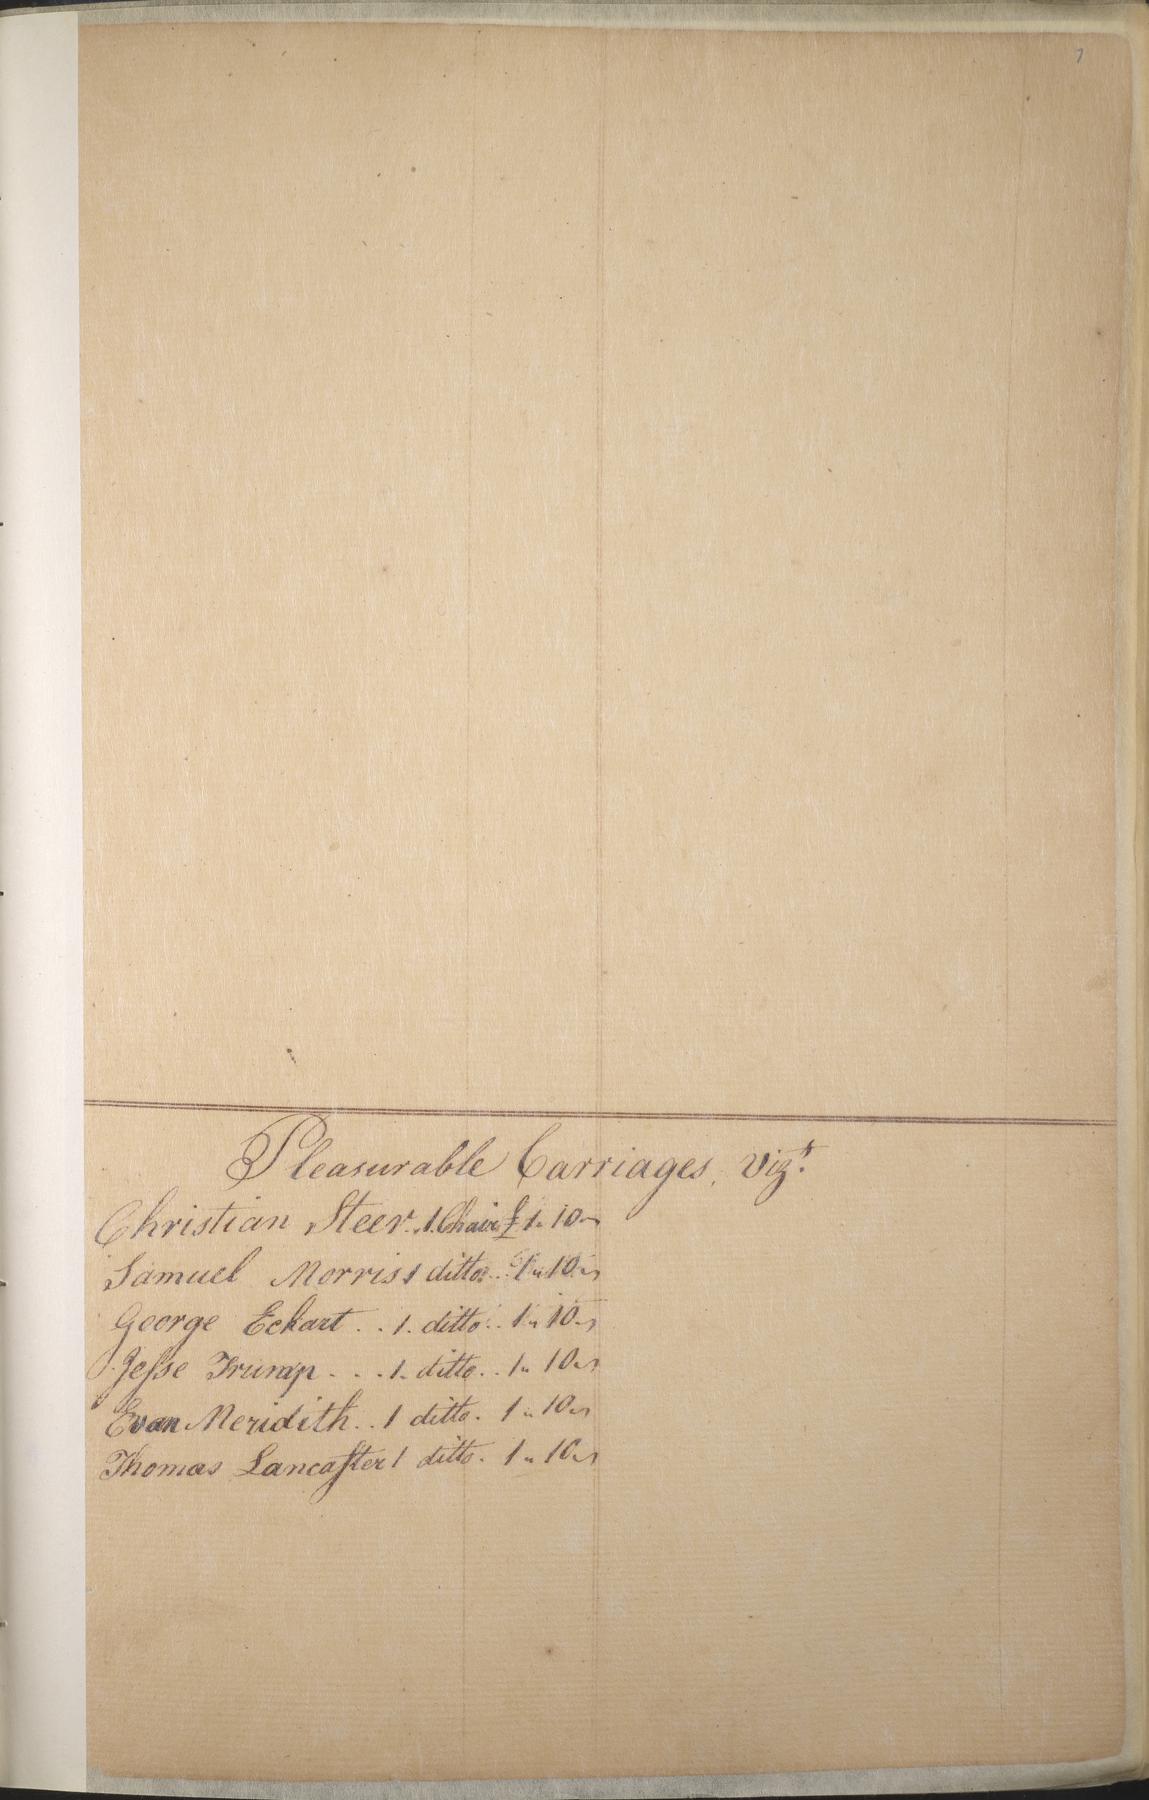 7
Pleasurable Carriages, vizt.
Christian Steer .. 1. Chair £ 1 " 10 " -
Samuel Morris 1 ditto .. 1 " 10 " -
George Eckart .. 1. ditto .. 1 " 10 " -
Jeſse Trump . . . 1. ditto .. 1 " 10 " -
Evan Meridith .. 1 ditto . 1 " 10 " -
Thomas Lancaſter 1 ditto . 1 " 10 " -